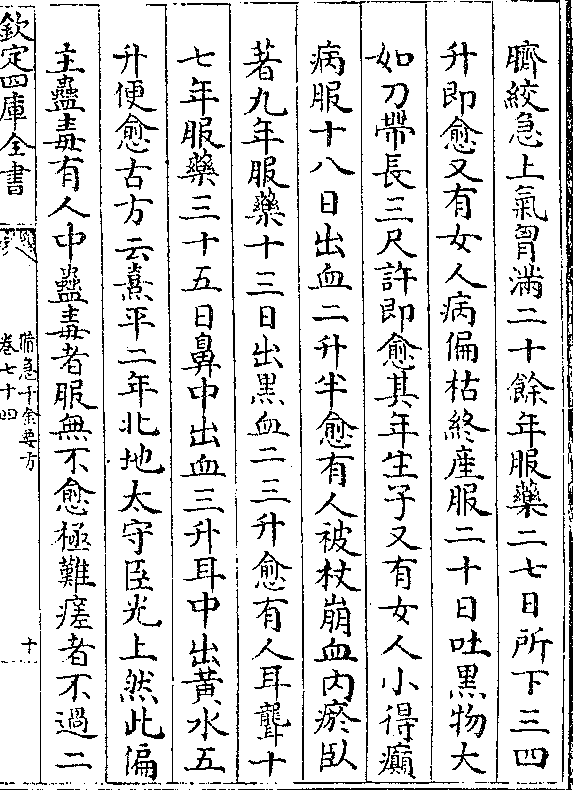 臍絞急上氣胷滿二十餘年服藥二七日所下三四
升即愈又有女人病偏枯終産服二十日吐黑物大
如刀帶長三尺許即愈其年生子又有女人小得癲
病服十八日出血二升半愈有人被杖崩血内瘀臥
著九年服藥十三日出黑血二三升愈有人耳聾十
七年服藥三十五日鼻中出血三升耳中出黃水五
升便愈古方云熹平二年北地太守臣光上然此偏
主蠱毒有人中蠱毒者服無不愈極難瘥者不過二
欽定四庫全書
備急千金要方
卷七十四
十